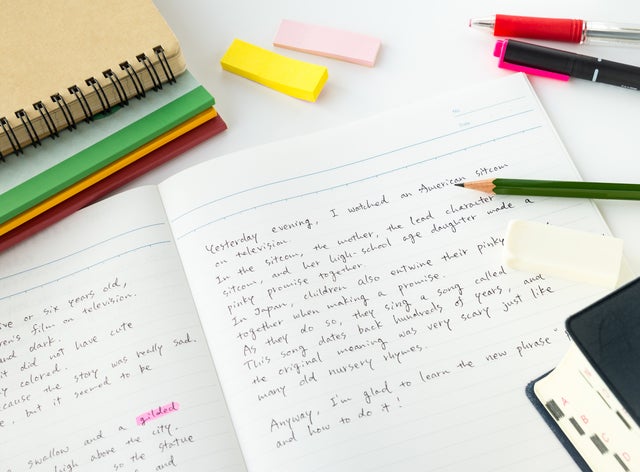 ve or six years old,
ren's film on television.
nd dark.
it did not have cute
y colored.
cause the story was really sad.
, but it seemed to be
swallow and a gilded
high above the city.
so the statue
and
No.
Date
Yesterday evening, I watched an American sitcom
on television.
In the sitcom, the mother, the lead character
sitcom, and her high-school age daughter made a
pinky promise together.
In Japan, children also entwine their pinky
together when making a promise.
As they do so, they sing a song called
This song dates back hundreds of years, and
the original meaning was very scary just like
many old nursery rhymes.
Anyway, I'm glad to learn the new phrase "
and how to do it!
A
B
C
D